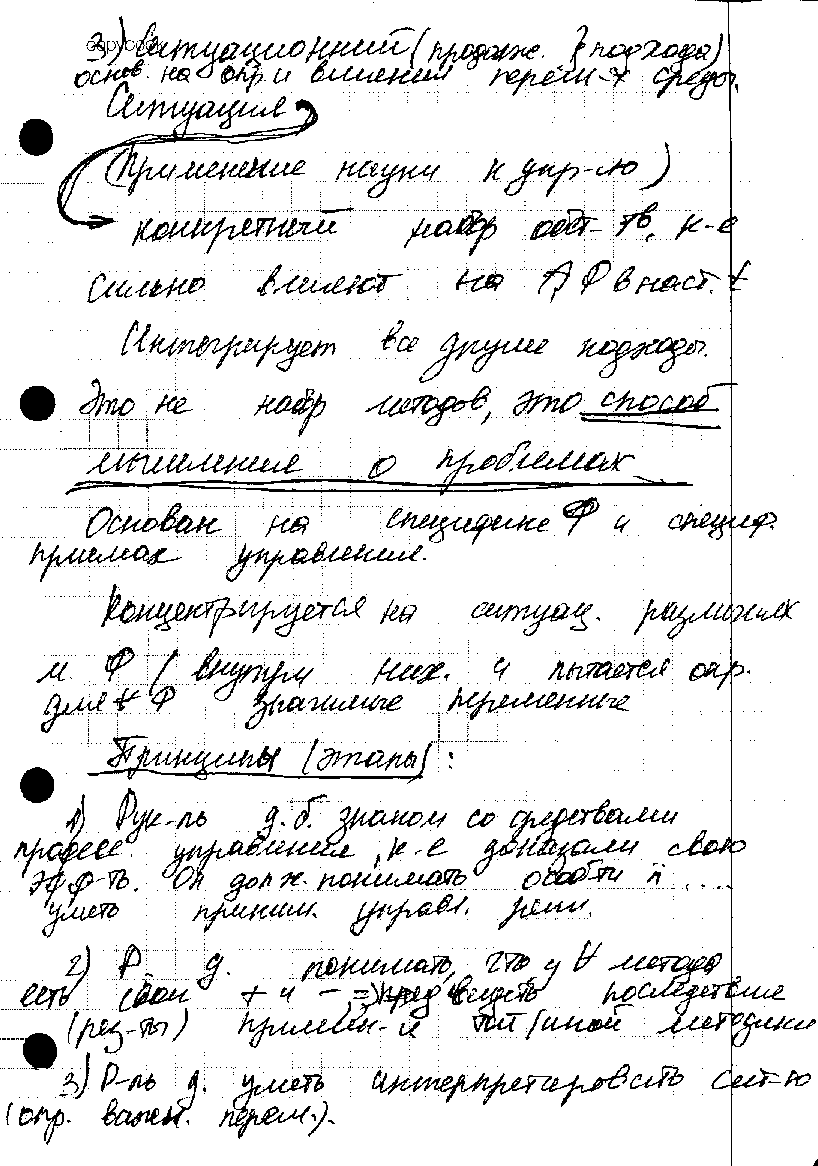 3) Ситуационный (продолж. } подхода)
основ. на опр и влиянии перем-х среды.
Ситуация
(Применение науки к упр-лю)
конкретный набор обст-тв, к-е
сильно влияют на Ф в наст. t
Интегрирует все другие подходы.
Это не набор методов, это способ
мышления о проблемах
Основан на специфике Ф и специф.
приемах управления.
Концентрируется на ситуац. различиях
м Ф / внутри них. и пытается опр.
для Ф значимые переменные
Принципы (этапы):
1) Рук-ль д.б. знаком со средствами
професс. управления, к-е доказали свою
эфф-ть. Он долж. понимать ....
уметь приним. управл. реш.
2) Р д. понимать, что у ∀ метода
есть свои + и - => последствие
(рез-ты) примен-я той/иной методики
3) Р-ль д. уметь интерпретировать сит-ю
(опр. важн. перем.).